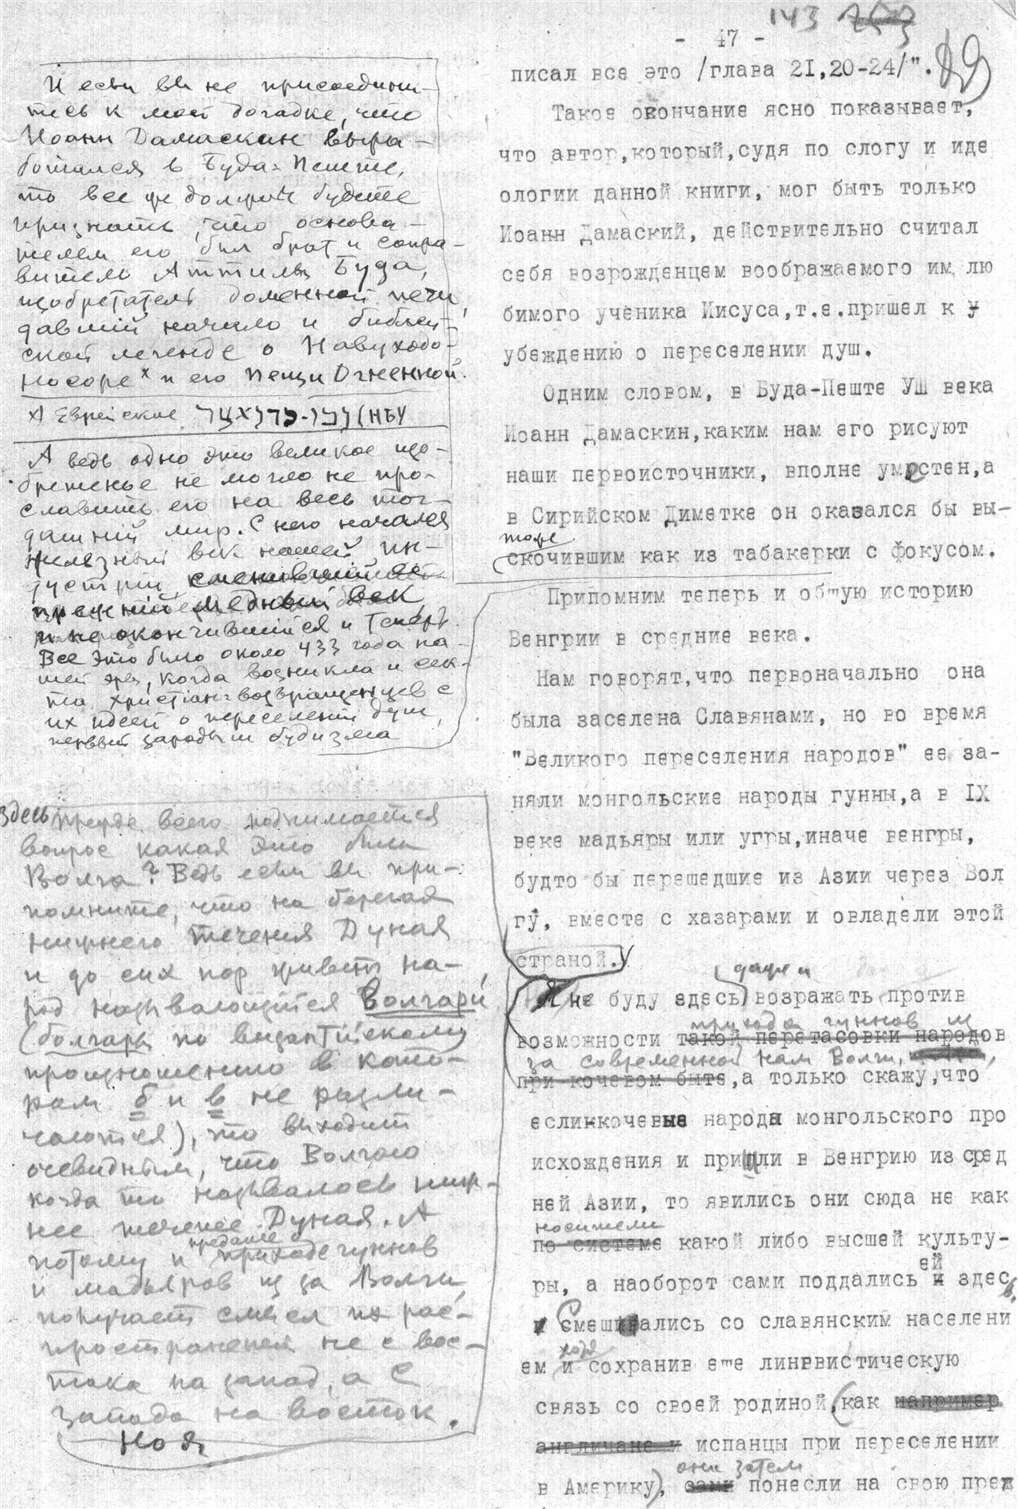 143
- 47 -
писал все это /глава 21,20-24/".
Такое окончание ясно показывает,
что автор,который,судя по слогу и иде
ологии данной книги, мог быть только
Иоанн Дамаский, действительно считал
себя возрожденцем воображаемого им лю
бимого ученика Иисуса,т.е.пришел к у
убеждению о переселении душ.
Одним словом, в Буда-Пеште УШ века
Иоанн Дамаскин,каким нам его рисуют
наши первоисточники, вполне уместен,а
в Сирийском Диметке он оказался бы вы-
тоже
скочившим как из табакерки с фокусом.
Припомним теперь и общую историю
Венгрии в средние века.
Нам говорят,что первоначально она
была заселена Славянами, но во время
"Великого переселения народов" ее за-
няли монгольские народы гунны,а в IX
веке мадьяры или угры,иначе венгры,
будто бы перешедшие из Азии через Вол
гу, вместе с хазарами и овладели этой
страной.
даже и
Я не буду здесь возражать против
прихода гуннов и
возможности такой перетасовки народов
за современной нам Волги,
при кочевом быте,а только скажу,что
если кочевые народы монгольского про
исхождения и пришли в Венгрию из сред
ней Азии, то явились они сюда не как
носители
по системе какой либо высшей культу-
ей
ры, а наоборот сами поддались и здесь
и Смешались со славянским населени
хотя
ем и сохранив еще лингвистическую
связь со своей родиной,(как например
англичане и испанцы при переселении
они затем
в Америку), сами понесли на свою пред
И если вы не присоедини-
тесь к моей догадке, что
Иоанн Дамаскин выра-
ботался в Буда-Пеште,
то все же должны будете
признать, что основа-
телем его был брат и сопра-
витель Аттилы Буда,
изобретатель доменной печи,
давший начало и библей-
ской легенде о Навуходо-
носоре х и его Пещи Огненной.
х Еврейское
А ведь одно это великое изо-
бретенье не могло не про-
славить его на весь тог-
дашний мир. С него начался
железный век нашей ин-
дустрии, сменивший
прежний медный век
и не окончившийся и теперь.
Все это было около 433 года на-
шей эры, когда возникла и сек-
та христиан-возвращенцев с
их идеей о переселении душ,
первый зародыш будизма
Здесь прежде всего поднимается
вопрос какая это была
Волга? Ведь если вы при-
помните, что на берегах
нижнего течения Дуная
и до сих пор живет на-
род называющийся Волгари
(болгары по византийскому
произношению в кото-
ром б и в не разли-
чаются), то выходит
очевидным, что Волгою
когда то называлось ниж-
нее течение Дуная. А
предание о
потому и приходе гуннов
и мадьяров из за Волги,
получает смысл их рас-
пространения не с вос-
тока на запад, а с
запада на восток.
Но я